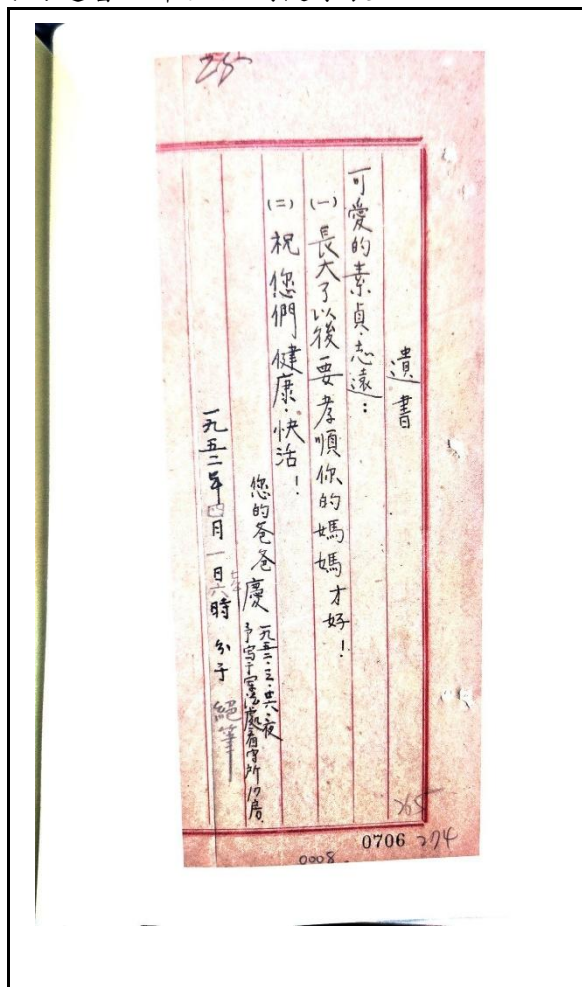 25
遺書
可愛的素貞・志遠：
(一) 長大了以後要孝順你的媽媽才好！
(二) 祝您們健康・快活！
您的爸爸 慶 一九五二・三・廿六・夜
予寫于軍法處看守所17房.
一九五二年四月一日六時 分于 絕筆
265
0706 274
0008